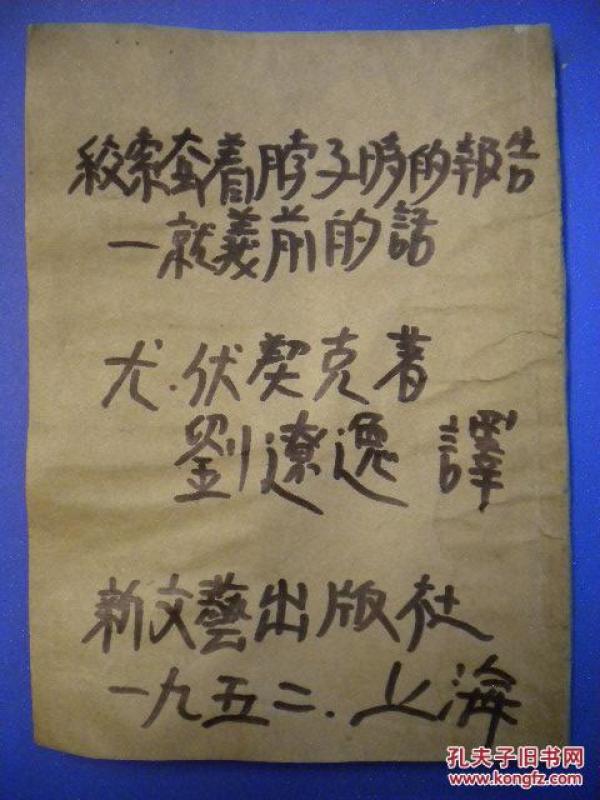 絞索套着脖子時的報告
一就義前的話
尤.伏契克著
劉遼逸 譯
新文藝出版社
一九五二.上海
孔夫子旧书网
www.kongfz.com